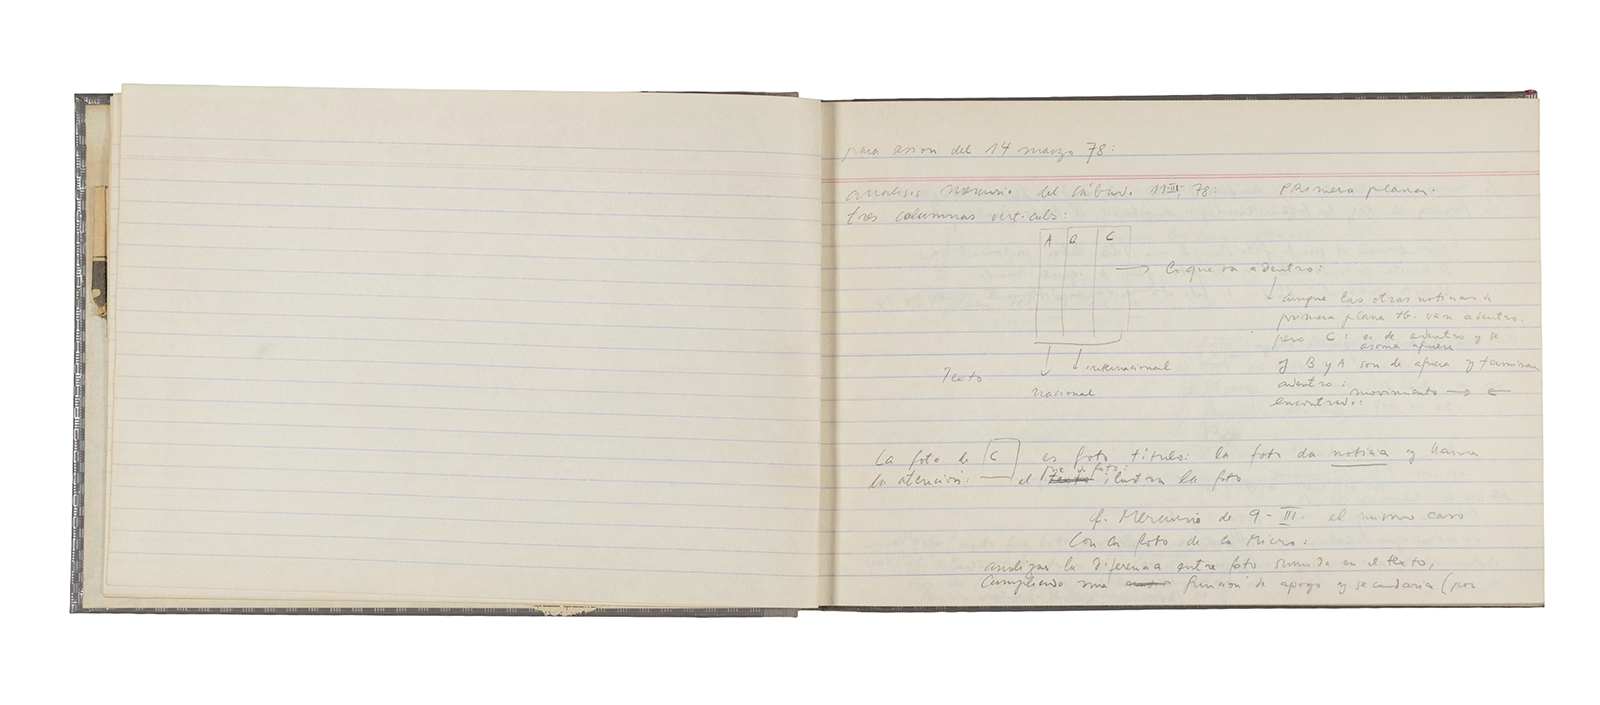 para sesion del 14 marzo 78:
analisis Mercurio del sábado 11 III, 78: Primera plana:
tres columnas verticales:
A B C
→ Lo que va adentro:
- aunque las otras noticias de
primera plana tb. van adentro:
pero C: es de adentro y se
asoma afuera
y B y A son de afuera y terminan
adentro:
movimiento → ←
encontrado:
internacional
Texto
nacional
La foto de C es foto título: la foto da noticia y llama
la atención: el pie d. foto: ilustra la foto
cf. Mercurio de 9-III. el mismo caso
Con la foto de la Micro:
analizar la diferencia entre foto sumida en el texto,
Cumpliendo una función de apoyo y secundaria (por